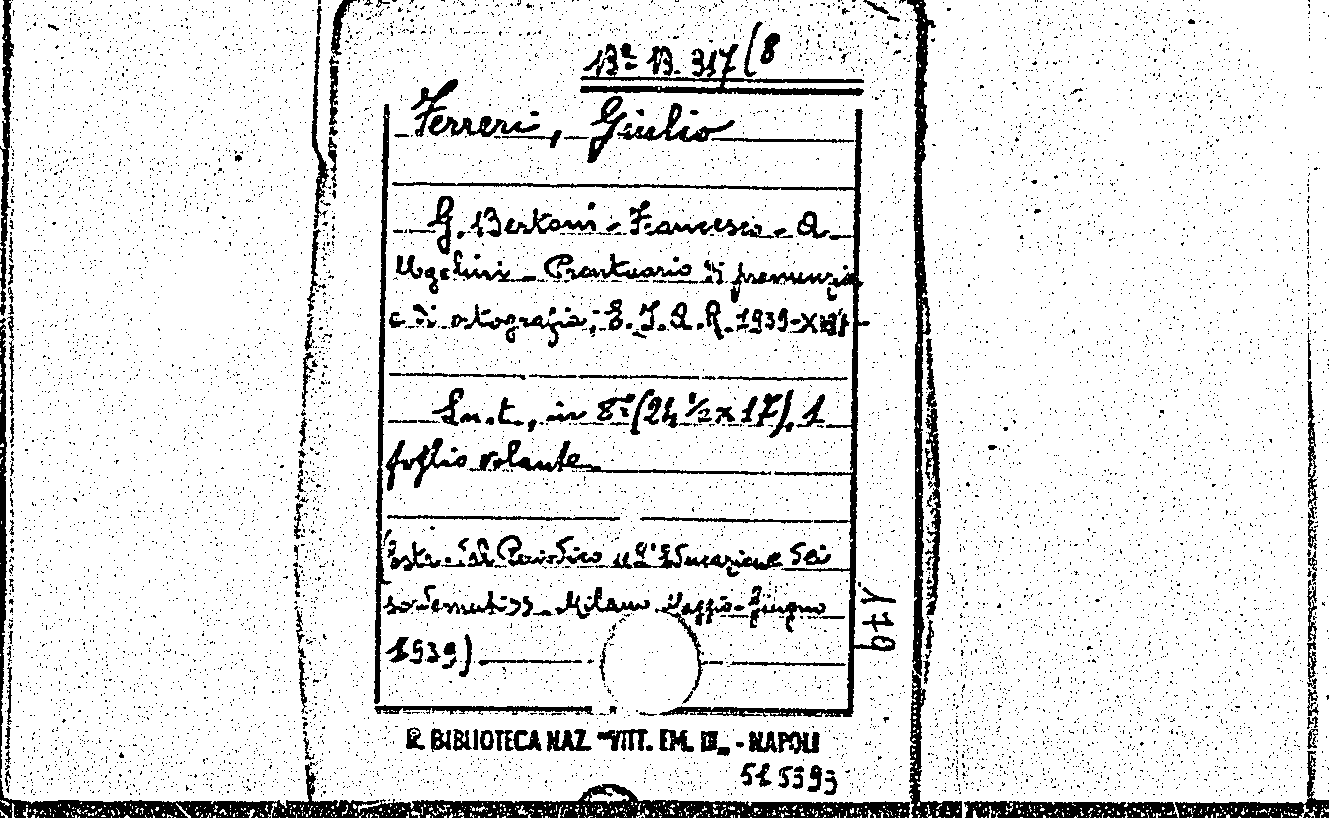 Bª B. 317 (8
Ferreri, Giulio
G. Bertoni - Francesco - A.
Ugolini - Prontuario di pronunzia
e di ortografia; E. I. A. R. 1939-XVII
S. n. t., in 8º (24 ½ x 17). 1
foglio volante.
(Estr. dal Periodico "L'Educazione dei
sordomuti". Milano Maggio-Giugno
1939)
R. BIBLIOTECA NAZ. "VITT. EM. III" - NAPOLI
515393